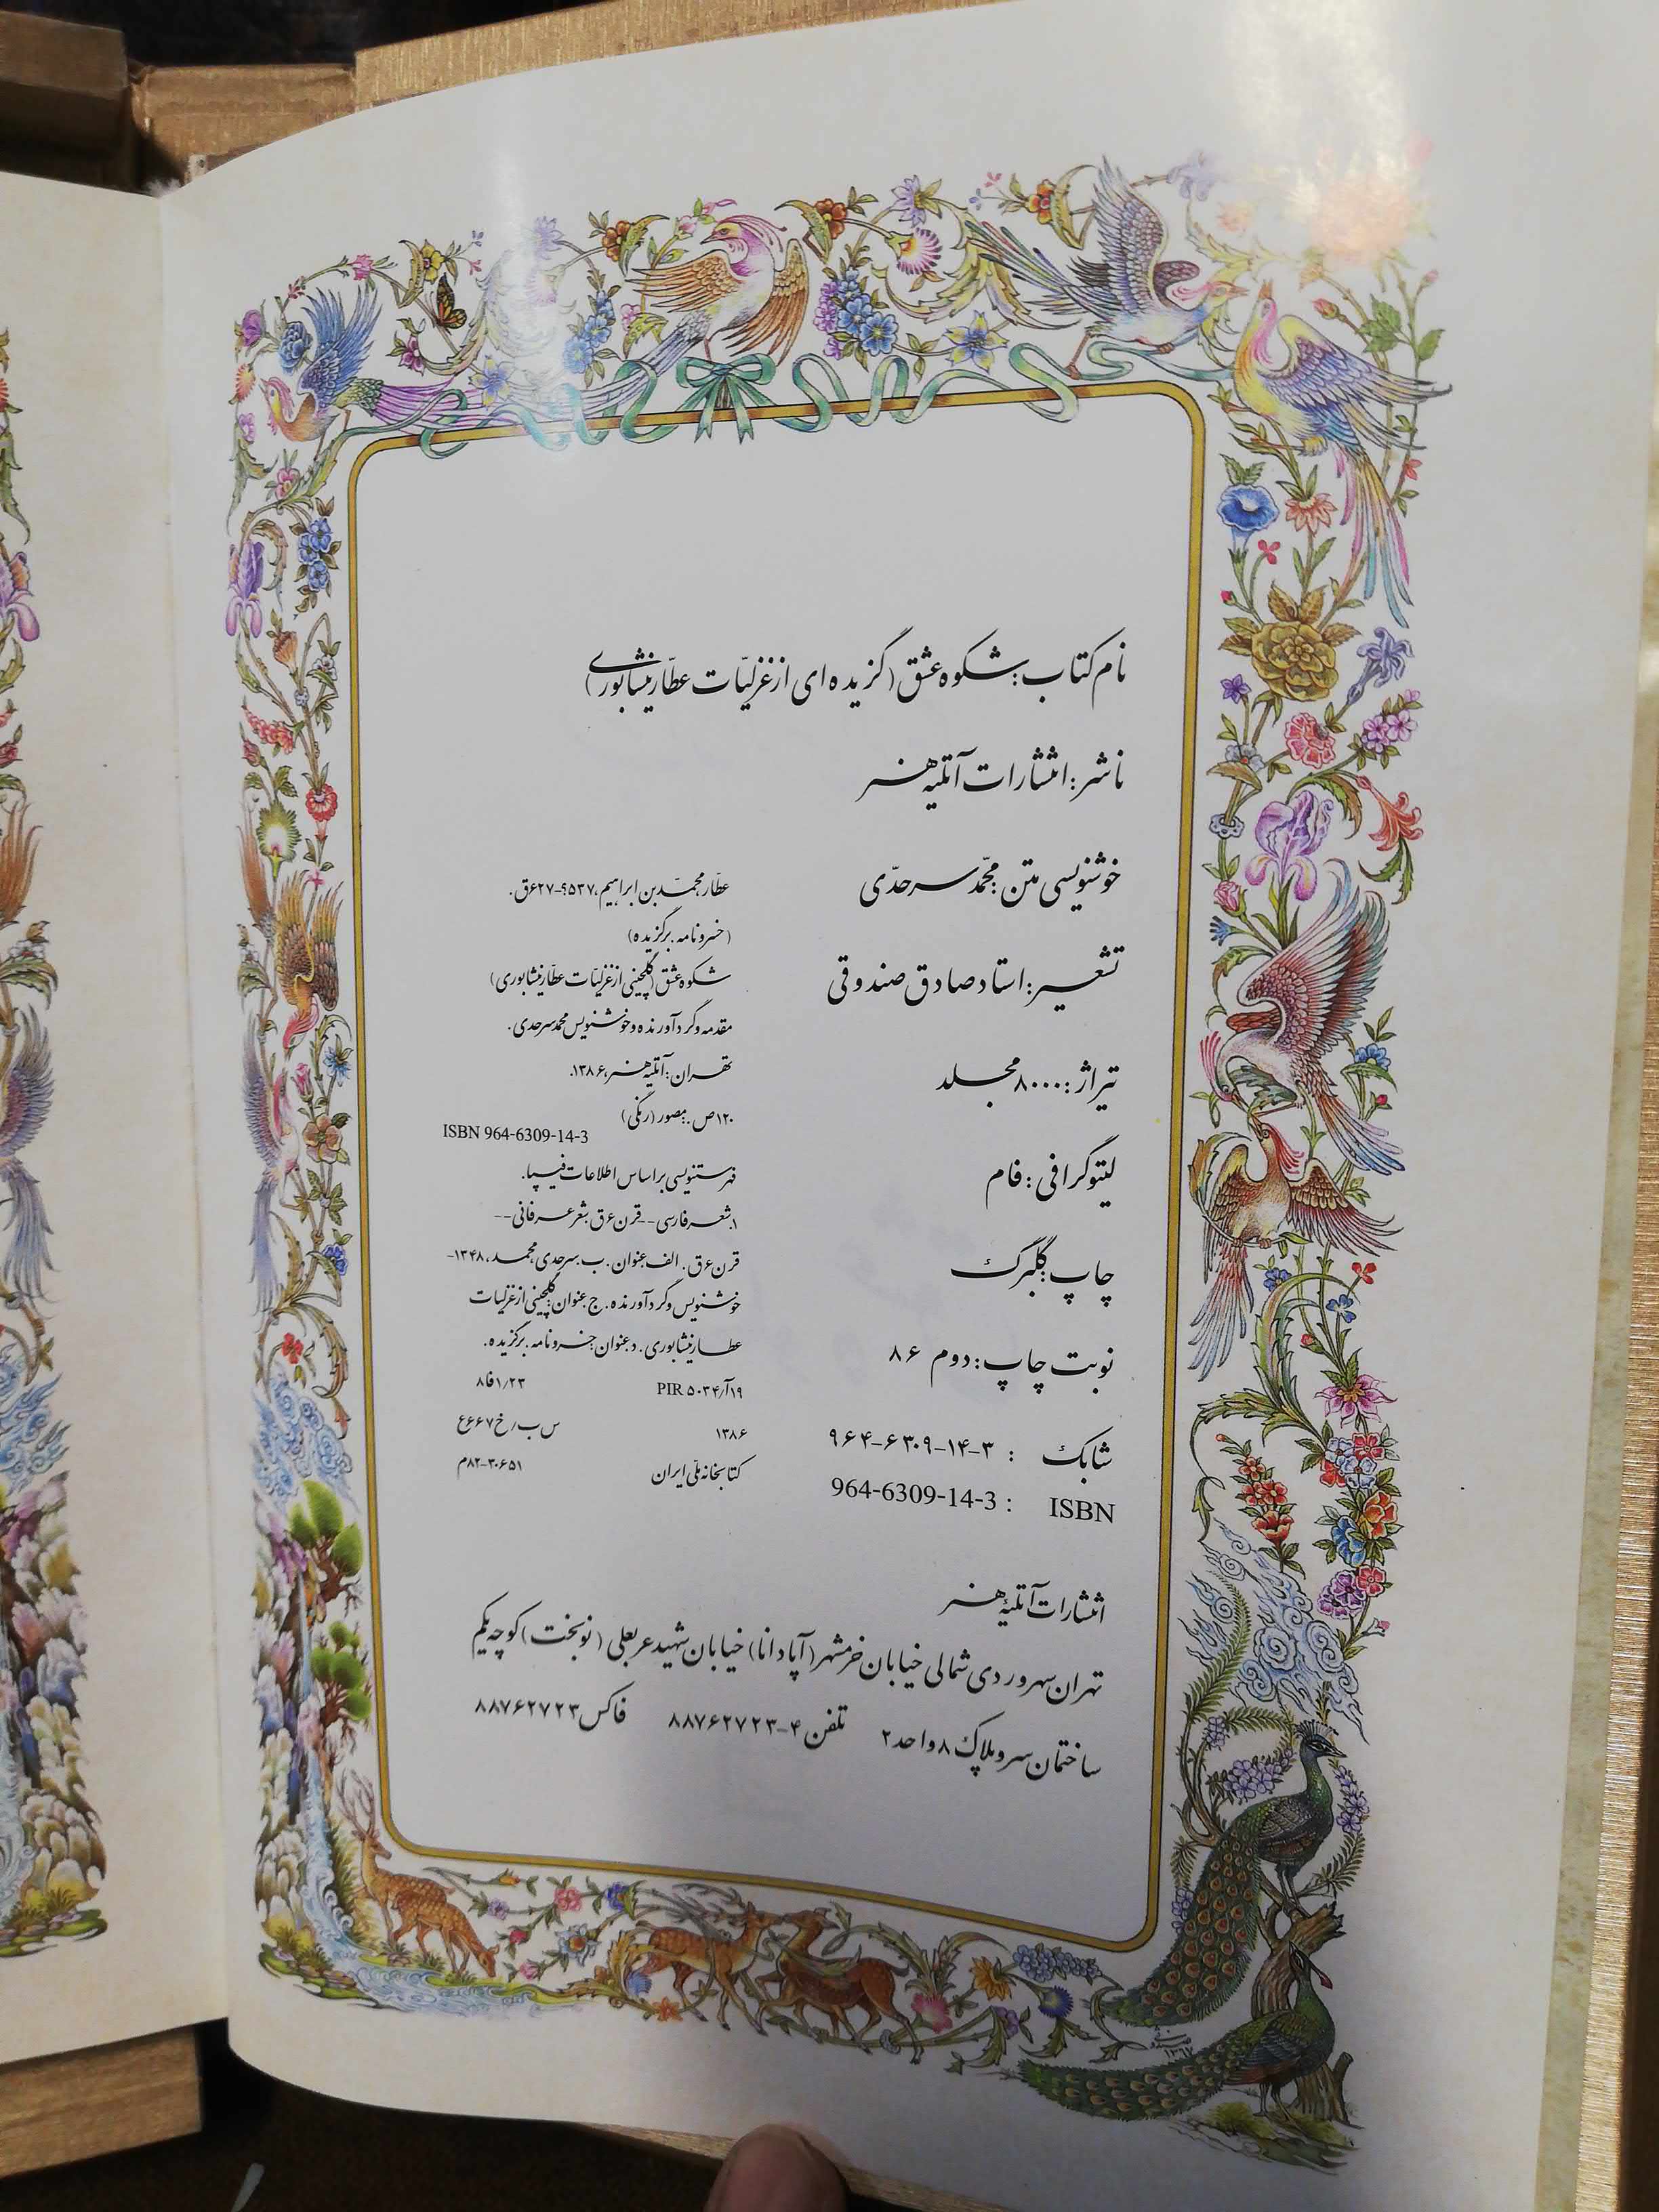 نام کتاب: شکوه عشق (گزیده ای از غزلیّات عطّار نیشابوری)
ناشر: انتشارات آتلیه هنر
خوشنویسی متن: محمّد سرحدّی
تشعیر: استاد صادق صندوقی
تیراژ: ۸۰۰۰ مجلد
لیتوگرافی: فام
چاپ: گلبرگ
نوبت چاپ: دوم ۸۶
شابک : ۳-۱۴-۶۳۰۹-۹۶۴
ISBN : 964-6309-14-3
عطّار، محمّد بن ابراهیم، ۵۳۷؟-۶۲۷ق.
(خسرو نامه. برگزیده)
شکوه عشق (گلچینی از غزلیّات عطّار نیشابوری)
مقدمه و گردآورنده و خوشنویس محمد سرحدی.
تهران: آتلیه هنر، ۱۳۸۶.
۱۲۰ص.: مصور (رنگی)
ISBN 964-6309-14-3
فهرستنویسی بر اساس اطلاعات فیپا.
۱. شعر فارسی--قرن ۶ق. شعر عرفانی--
قرن ۶ق. الف. عنوان. ب. سرحدی، محمد، ۱۳۴۸-
خوشنویس و گردآورنده. ج. عنوان: گلچینی از غزلیات
عطار نیشابوری. د. عنوان: خسرو نامه. برگزیده.
PIR ۵۰۳۴/آ۱۹ ۸فا۱/۲۳
۱۳۸۶ س ب/خ۶۶۷ع
کتابخانه ملّی ایران ۸۲-۳۰۶۵۱م
انتشارات آتلیهٔ هنر
تهران سهروردی شمالی خیابان خرمشهر (آپادانا) خیابان شهید عربعلی (نوبخت) کوچه یکم
ساختمان سرو پلاک ۸ واحد ۲ تلفن ۴-۸۸۷۶۲۷۲۳ فاکس ۸۸۷۶۲۷۲۳
۱۳۶۷